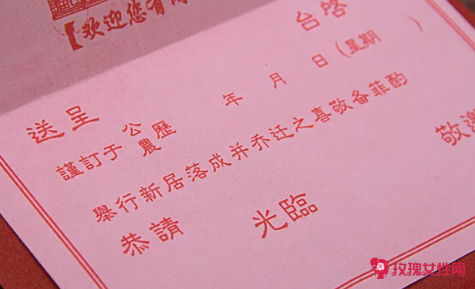 【欢迎您有
送呈 台啓
謹訂于 公農歷 年 月 日(星期 )
舉行新居落成并乔迁之喜敬备菲酌
敬邀
恭請 光臨
玫瑰女性网